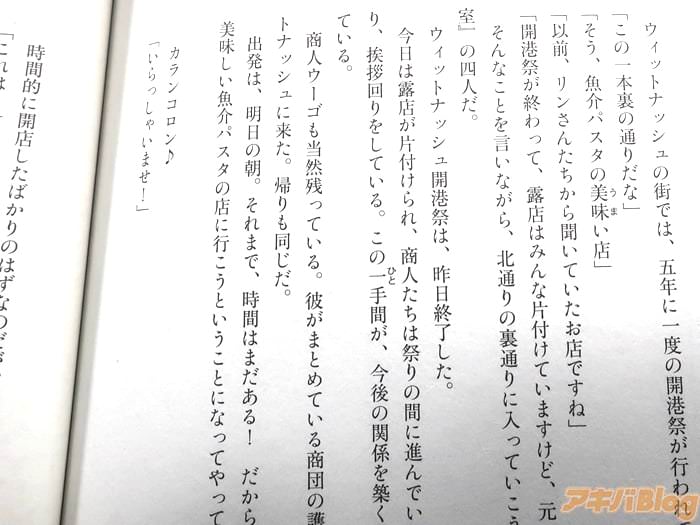 ウィットナッシュの街では、五年に一度の開港祭が行われ
「この一本裏の通りだな」
「そう、魚介パスタの美味い店」
「以前、リンさんたちから聞いていたお店ですね」
「開港祭が終わって、露店はみんな片付けていますけど、元
そんなことを言いながら、北通りの裏通りに入っていこ
室』の四人だ。
ウィットナッシュ開港祭は、昨日終了した。
今日は露店が片付けられ、商人たちは祭りの間に進んでい
り、挨拶回りをしている。この一手間が、今後の関係を築く
ている。
商人ウーゴも当然残っている。彼がまとめている商団の護
トナッシュに来た。帰りも同じだ。
出発は、明日の朝。それまで、時間はまだある！　だから
美味しい魚介パスタの店に行こうということになってやって
カランコロン♪
「いらっしゃいませ！」
時間的に開店したばかりのはずなのだが
「これは
アキバBlog